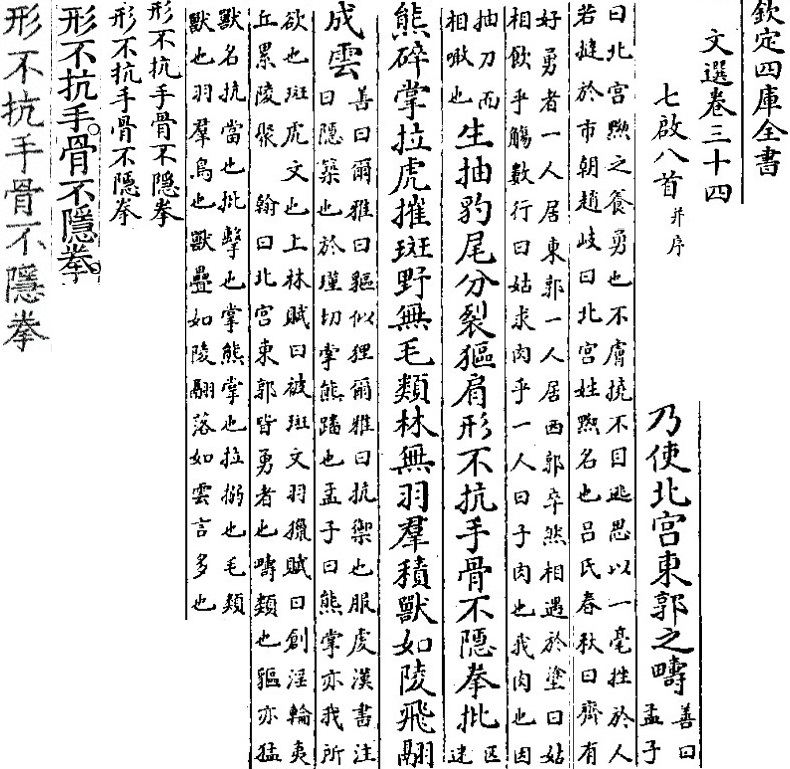 欽定四庫全書
文選卷三十四
七啟八首并序
乃使北宮東郭之疇善曰孟子
曰北宮黝之養勇也不膚撓不目逃思以一毫挫於人
若撻於市朝趙岐曰北宮姓黝名也吕氏春秋曰齊有
好勇者一人居東郭一人居西郭卒然相遇於塗曰姑
相飲乎觴數行曰姑求肉乎一人曰子肉也我肉也因
抽刀而相噉也生抽豹尾分裂貙肩形不抗手骨不隱拳批區迷
熊碎掌拉虎摧斑野無毛類林無羽羣積獸如陵飛翮
成雲善曰爾雅曰貙似狸爾雅曰抗禦也服虔漢書注
曰隱築也於瑾切掌熊蹯也孟子曰熊掌亦我所
欲也斑虎文也上林賦曰被斑文羽獵賦曰創淫輪夷
丘累陵聚 翰曰北宮東郭皆勇者也疇類也貙亦猛
獸名抗當也批擊也掌熊掌也拉搦也毛類
獸也羽羣鳥也獸疊如陵翮落如雲言多也
形不抗手骨不隱拳
形不抗手骨不隱拳
形不抗手。骨不隱拳。
形不抗手骨不隱拳